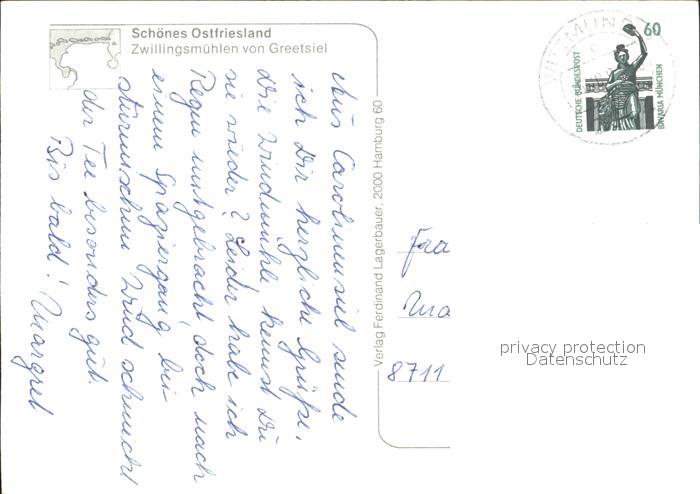 Schönes Ostfriesland
Zwillingsmühlen von Greetsiel
Aus Carolinensiel sende
ich Dir herzliche Grüße.
Die Windmühle kennst Du
sie wieder? Leider habe ich
Regen mitgebracht, doch nach
einem Spaziergang bei
stürmischem Wind schmeckt
der Tee besonders gut.
Bis bald! Margret
Verlag Ferdinand Lagerbauer, 2000 Hamburg 60
60
DEUTSCHE BUNDESPOST
BAVARIA MÜNCHEN
Fra
Ma
8711
privacy protection
Datenschutz